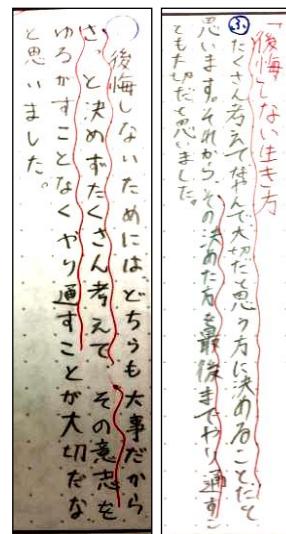 「後悔しない生き方
ふ たくさん考えてなやんで大切だと思う方に決めることだと
思います。それから、その決めた方を最後までやり通すこ
とも大切だと思いました。
後悔しないためには、どちらも大事だから
さっと決めずたくさん考えて、その意志を
ゆるがすことなくやり通すことが大切だな
と思いました。